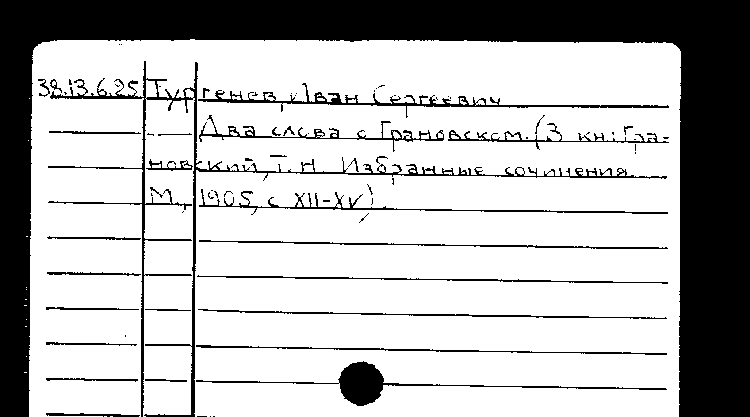 38.13.6.25 Тургенев, Иван Сергеевич
Два слова о Грановском. (В кн.: Гра-
новский, Т. Н. Избранные сочинения.
М., 1905, с XII-XV).